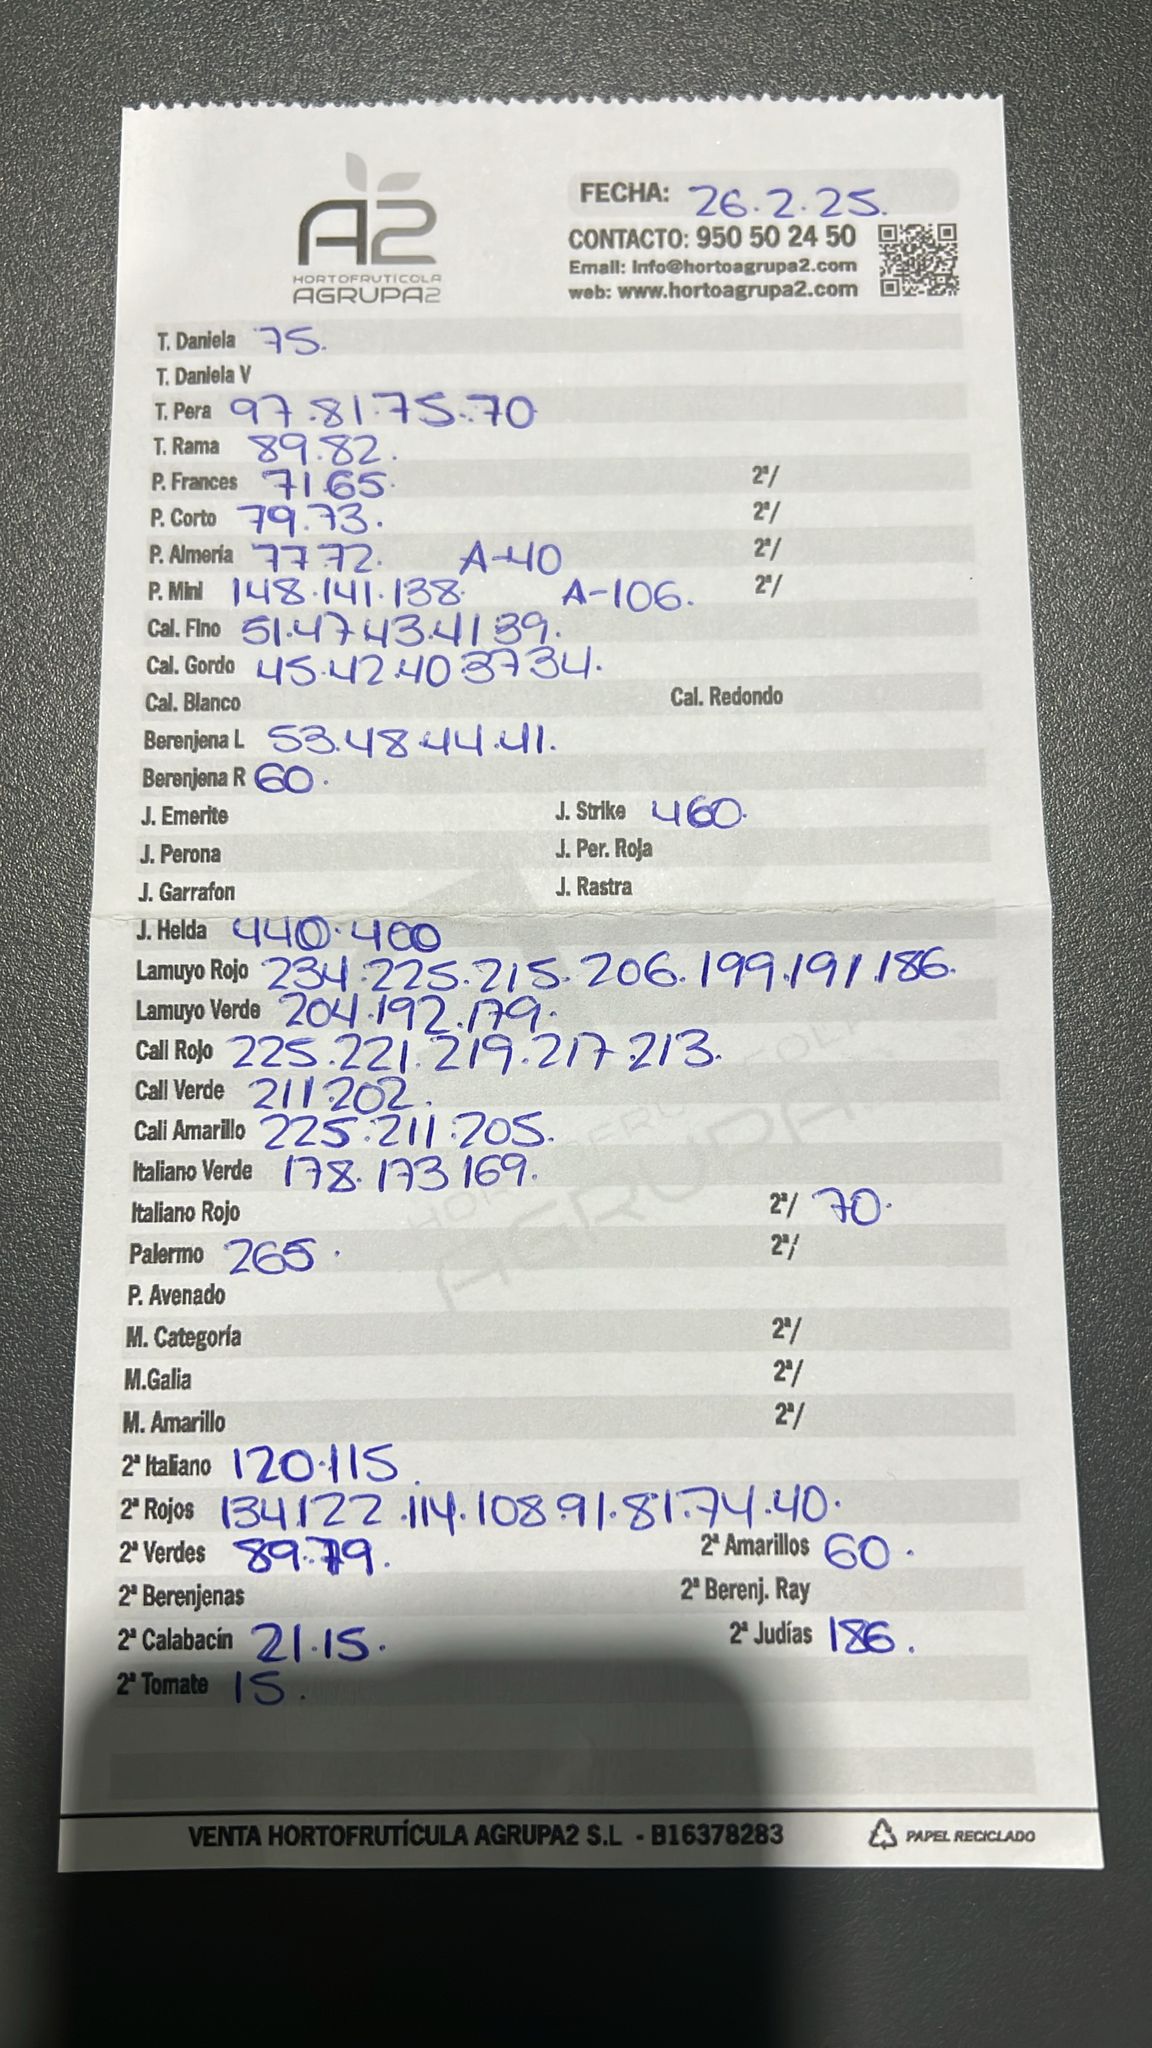 A2
HORTOFRUTÍCOLA
AGRUPA2
FECHA: 26.2.25.
CONTACTO: 950 50 24 50
Email: Info@hortoagrupa2.com
web: www.hortoagrupa2.com
T. Daniela 75.
T. Daniela V
T. Pera 97.81.75.70
T. Rama 89.82.
P. Frances 71.65. 2ª/
P. Corto 79.73. 2ª/
P. Almería 77.72. A-40 2ª/
P. Mini 148.141.138. A-106. 2ª/
Cal. Fino 51.47.43.41.39.
Cal. Gordo 45.42.40.37.34.
Cal. Blanco Cal. Redondo
Berenjena L 53.48.44.41.
Berenjena R 60.
J. Emerite J. Strike 460.
J. Perona J. Per. Roja
J. Garrafon J. Rastra
J. Helda 440.400
Lamuyo Rojo 234.225.215.206.199.191.186.
Lamuyo Verde 204.192.179.
Cali Rojo 225.221.219.217.213.
Cali Verde 211.202.
Cali Amarillo 225.211.205.
Italiano Verde 178.173.169.
Italiano Rojo 2ª/ 70.
Palermo 265. 2ª/
P. Avenado
M. Categoría 2ª/
M.Galia 2ª/
M. Amarillo 2ª/
2ª Italiano 120.115.
2ª Rojos 134.122.114.108.91.81.74.40.
2ª Verdes 89.79. 2ª Amarillos 60.
2ª Berenjenas 2ª Berenj. Ray
2ª Calabacín 21.15. 2ª Judías 186.
2ª Tomate 15.
VENTA HORTOFRUTÍCULA AGRUPA2 S.L - B16378283 PAPEL RECICLADO